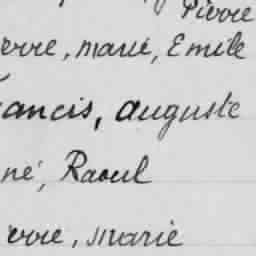 Pierre
erre, Marie, Emile
ancis, Auguste
né, Raoul
erre, Marie